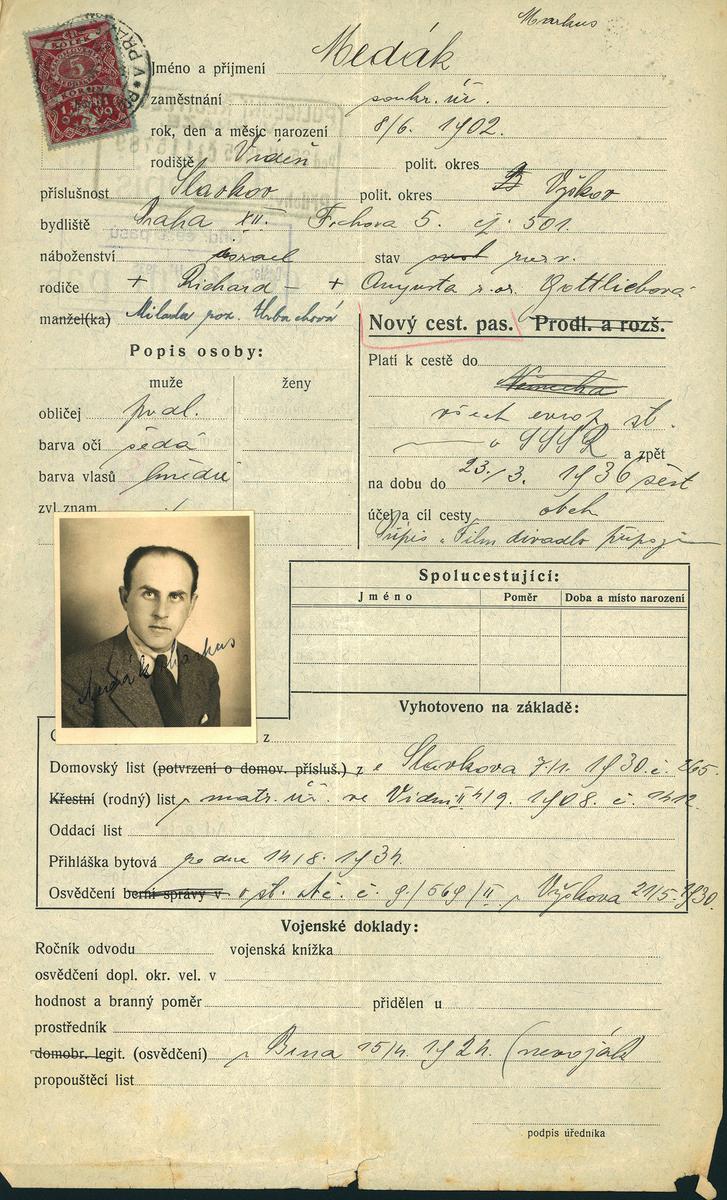 Markus
Jméno a příjmení Medák
zaměstnání soukr. úř.
rok, den a měsíc narození 8/6. 1902.
rodiště Vídeň polit. okres
příslušnost Slavkov polit. okres Vyškov
bydliště Praha XII. Fochova 5. čj. 501.
náboženství israel stav rozv.
rodiče + Richard - + Augusta roz. Gottliebová
manžel(ka) Milada roz. Urbachová
Nový cest. pas. Prodl. a rozš.
Popis osoby:
muže ženy
obličej podl.
barva očí šedá
barva vlasů hnědé
zvl. znam. ./.
Platí k cestě do
Německa
všech evrop. st.
SSSR a zpět
na dobu do 23./3. 1936 šest
účel a cíl cesty obch
Film divadlo
Medák Markus
Spolucestující:
Jméno Poměr Doba a místo narození
Vyhotoveno na základě:
z
Domovský list (potvrzení o domov. přísluš.) z Slavkova 7./1. 1930. č. 265.
Křestní (rodný) list matr. úř. ve Vídni II 4/9. 1908. č. 1412
Oddací list
Přihláška bytová ze dne 14/8. 1934.
Osvědčení berní správy v st. č. 9/569/II Vyškova 21/5. 1930.
Vojenské doklady:
Ročník odvodu vojenská knížka
osvědčení dopl. okr. vel. v
hodnost a branný poměr přidělen u
prostředník
domobr. legit. (osvědčení) Brna 15/4. 1924. (nevoják
propouštěcí list
podpis úředníka